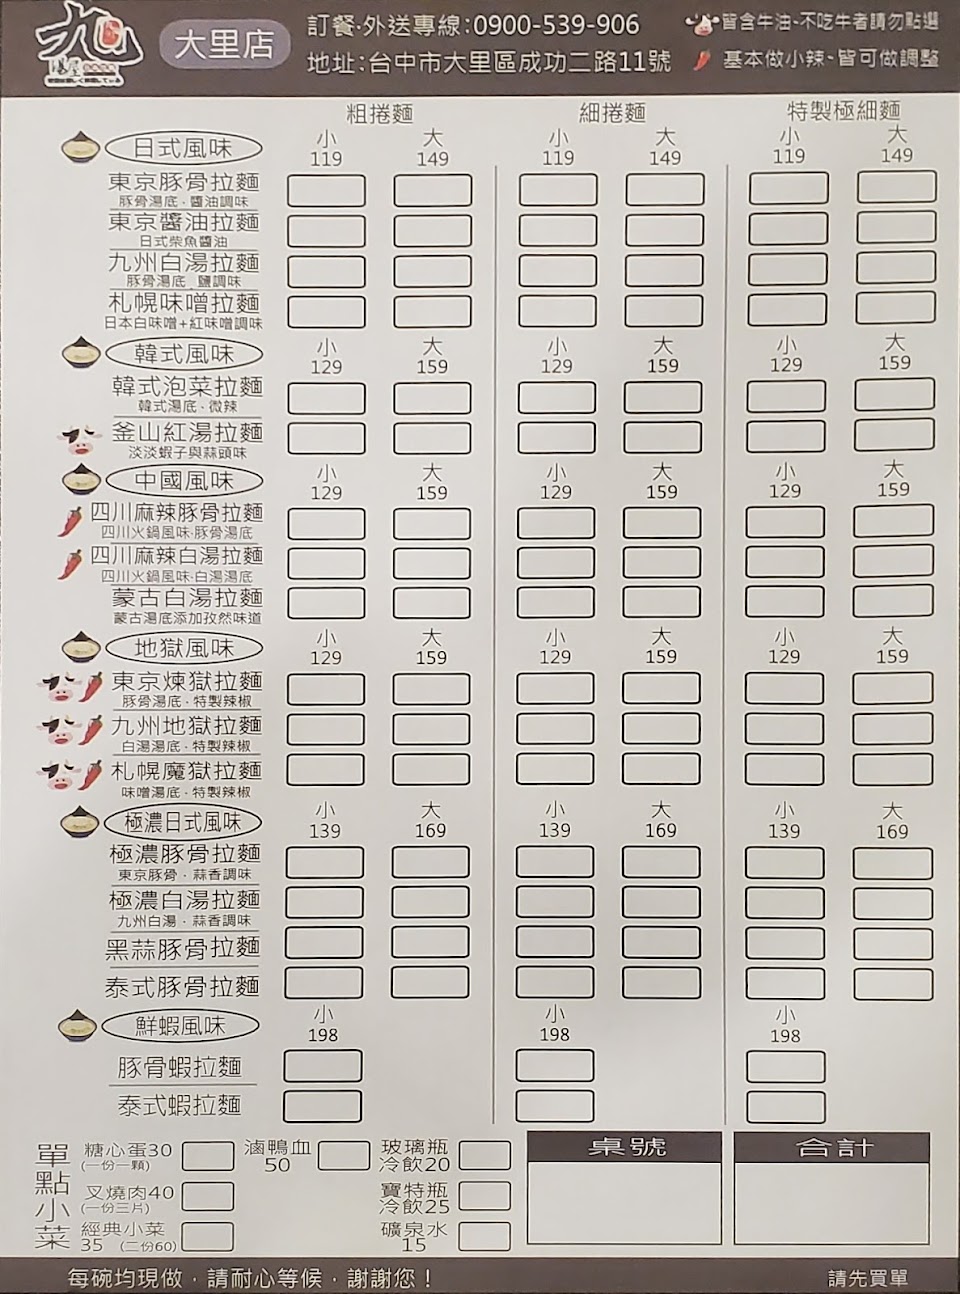 九湯屋
大里店
訂餐·外送專線:0900-539-906
地址:台中市大里區成功二路11號
皆含牛油~不吃牛者請勿點選
基本做小辣~皆可做調整
粗捲麵 細捲麵 特製極細麵
日式風味 小 大 小 大 小 大
119 149 119 149 119 149
東京豚骨拉麵
豚骨湯底·醬油調味
東京醬油拉麵
日式柴魚醬油
九州白湯拉麵
豚骨湯底·鹽調味
札幌味噌拉麵
日本白味噌+紅味噌調味
韓式風味 小 大 小 大 小 大
129 159 129 159 129 159
韓式泡菜拉麵
韓式湯底·微辣
釜山紅湯拉麵
淡淡蝦子與蒜頭味
中國風味 小 大 小 大 小 大
129 159 129 159 129 159
四川麻辣豚骨拉麵
四川火鍋風味·豚骨湯底
四川麻辣白湯拉麵
四川火鍋風味·白湯湯底
蒙古白湯拉麵
蒙古湯底添加孜然味道
地獄風味 小 大 小 大 小 大
129 159 129 159 129 159
東京煉獄拉麵
豚骨湯底·特製辣椒
九州地獄拉麵
白湯湯底·特製辣椒
札幌魔獄拉麵
味噌湯底·特製辣椒
極濃日式風味 小 大 小 大 小 大
139 169 139 169 139 169
極濃豚骨拉麵
東京豚骨·蒜香調味
極濃白湯拉麵
九州白湯·蒜香調味
黑蒜豚骨拉麵
泰式豚骨拉麵
鮮蝦風味 小 小 小
198 198 198
豚骨蝦拉麵
泰式蝦拉麵
單點小菜
糖心蛋30
(一份一顆)
滷鴨血
50
玻璃瓶
冷飲20
叉燒肉40
(一份三片)
寶特瓶
冷飲25
經典小菜
35 (二份60)
礦泉水
15
桌號 合計
每碗均現做，請耐心等候，謝謝您！
請先買單